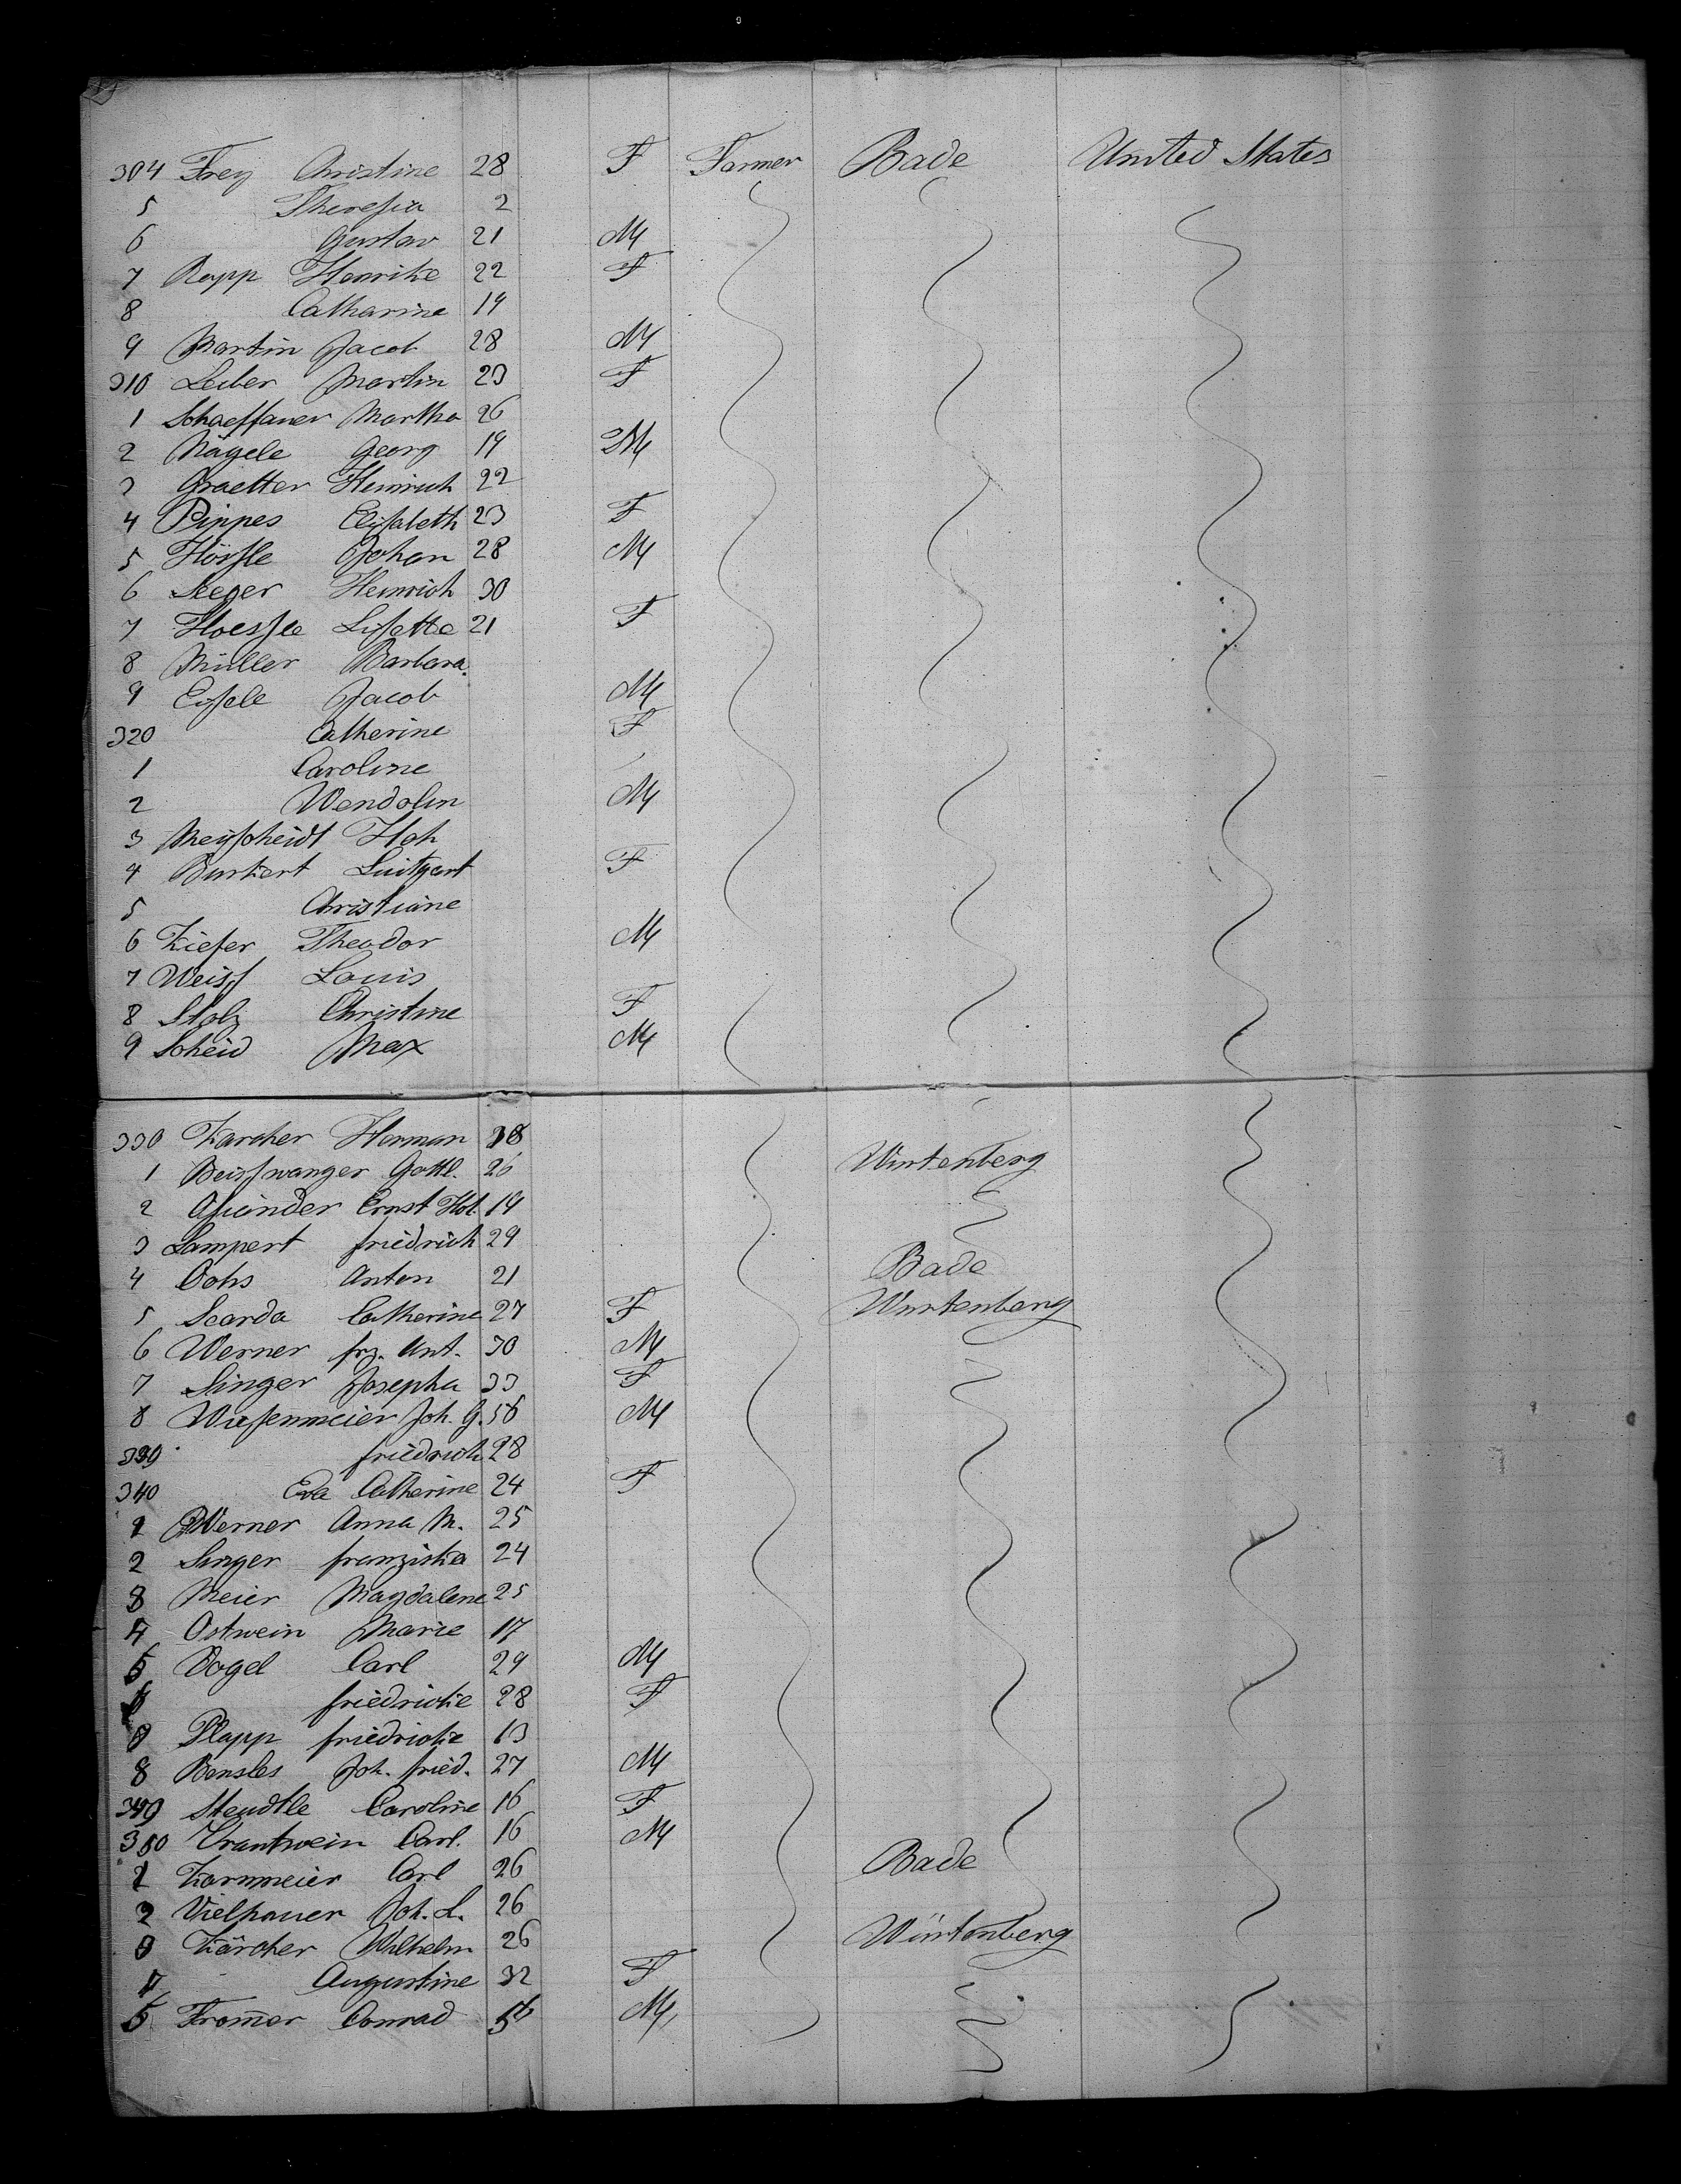 304 Frey Christine 28 F Farmer Bade United States
5 Theresia 2
6 Gustav 21 M
7 Rapp Henrike 22 F
8 Catharine 19
9 Martin Jacob 28 M
310 Leiber Martin 23 F
1 Schaeffauer Martha 26
2 Nägele Georg 19 M
3 Graetter Heinrich 22
4 Pippes Elisabeth 23 F
5 Hörsle Johan 28 M
6 Seeger Heinrich 30
7 Hoessle Lisette 21 F
8 Müller Barbara
9 Eisele Jacob M
320 Catherine F
1 Caroline
2 Wendolin M
3 Hoh
4 Burkert Luitgart F
5 Christiane
6 Kiefer Theodor M
7 Weiss Louis
8 Stolz Christine F
9 Scheid Max M
330 Karcher Herman 38
1 Beisswanger Gottl. 26 Wurtenberg
2 Ernst 19
3 Lampert friedrich 29
4 Ochs Anton 21 Bade
5 Searda Catherine 27 F Wurtenberg
6 Werner frz. Ant. 30 M
7 Singer Josepha 33 F
8 Wiesenmeier Joh. G. 56 M
339 friedrich 28
340 Eva Catherine 24 F
1 Werner Anna M. 25
2 Singer franziska 24
3 Meier Magdalene 25
4 Ostwein Marie 17
5 Vogel Carl 29 M
6 friedricke 28 F
7 Plapp friedricke 13
8 Bensles Joh. fried. 27 M
349 Steudtle Caroline 16 F
350 Krantwein Carl. 16 M
1 Karnmeier Carl 26 Bade
2 Vielhauer Joh. L. 26
3 Kärcher Wilhelm 26 Würtenberg
4 Augustine 32 F
5 Fromer Conrad M